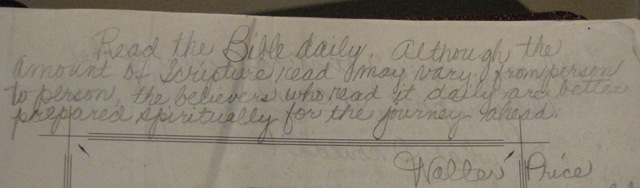 Read the Bible daily. Although the
amount of Scripture read may vary from person
to person, the believers who read it daily are better
prepared spiritually for the journey ahead.
Walter Price